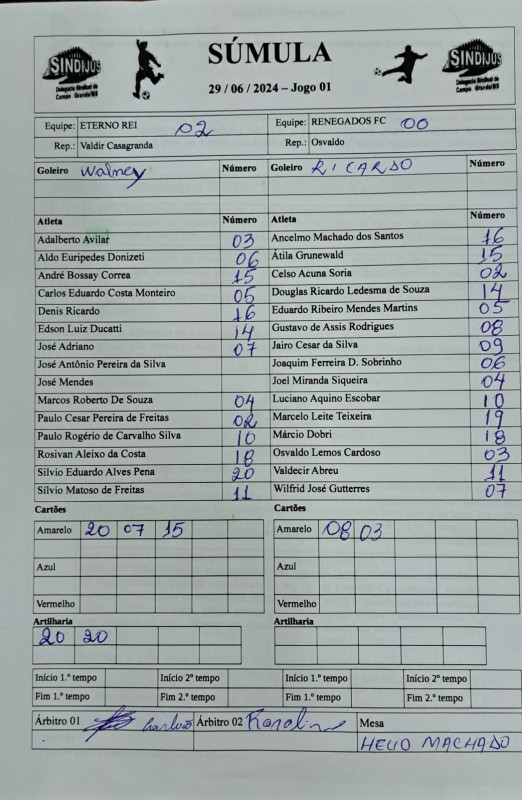 SINDIJUS
Delegacia Sindical de
Campo Grande/MS
SÚMULA
29 / 06 / 2024 – Jogo 01
SINDIJUS
Delegacia Sindical de
Campo Grande/MS
Equipe: ETERNO REI 02 Equipe: RENEGADOS FC 00
Rep.: Valdir Casagranda Rep.: Osvaldo
Goleiro Walney Número Goleiro RICARDO Número
Atleta Número Atleta Número
Adalberto Avilar 03 Ancelmo Machado dos Santos 16
Aldo Euripedes Donizeti 06 Átila Grunewald 15
André Bossay Correa 15 Celso Acuna Soria 02
Carlos Eduardo Costa Monteiro 05 Douglas Ricardo Ledesma de Souza 14
Denis Ricardo 16 Eduardo Ribeiro Mendes Martins 05
Edson Luiz Ducatti 14 Gustavo de Assis Rodrigues 08
José Adriano 07 Jairo Cesar da Silva 09
José Antônio Pereira da Silva Joaquim Ferreira D. Sobrinho 06
José Mendes Joel Miranda Siqueira 04
Marcos Roberto De Souza 04 Luciano Aquino Escobar 10
Paulo Cesar Pereira de Freitas 02 Marcelo Leite Teixeira 19
Paulo Rogério de Carvalho Silva 10 Márcio Dobri 18
Rosivan Aleixo da Costa 18 Osvaldo Lemos Cardoso 03
Silvio Eduardo Alves Pena 20 Valdecir Abreu 11
Sílvio Matoso de Freitas 11 Wilfrid José Gutterres 07
Cartões Cartões
Amarelo 20 07 15 Amarelo 08 03
Azul Azul
Vermelho Vermelho
Artilharia Artilharia
20 20
Início 1.º tempo Início 2º tempo Início 1.º tempo Início 2º tempo
Fim 1.º tempo Fim 2.º tempo Fim 1.º tempo Fim 2.º tempo
Árbitro 01 Árbitro 02 Mesa
HELIO MACHADO